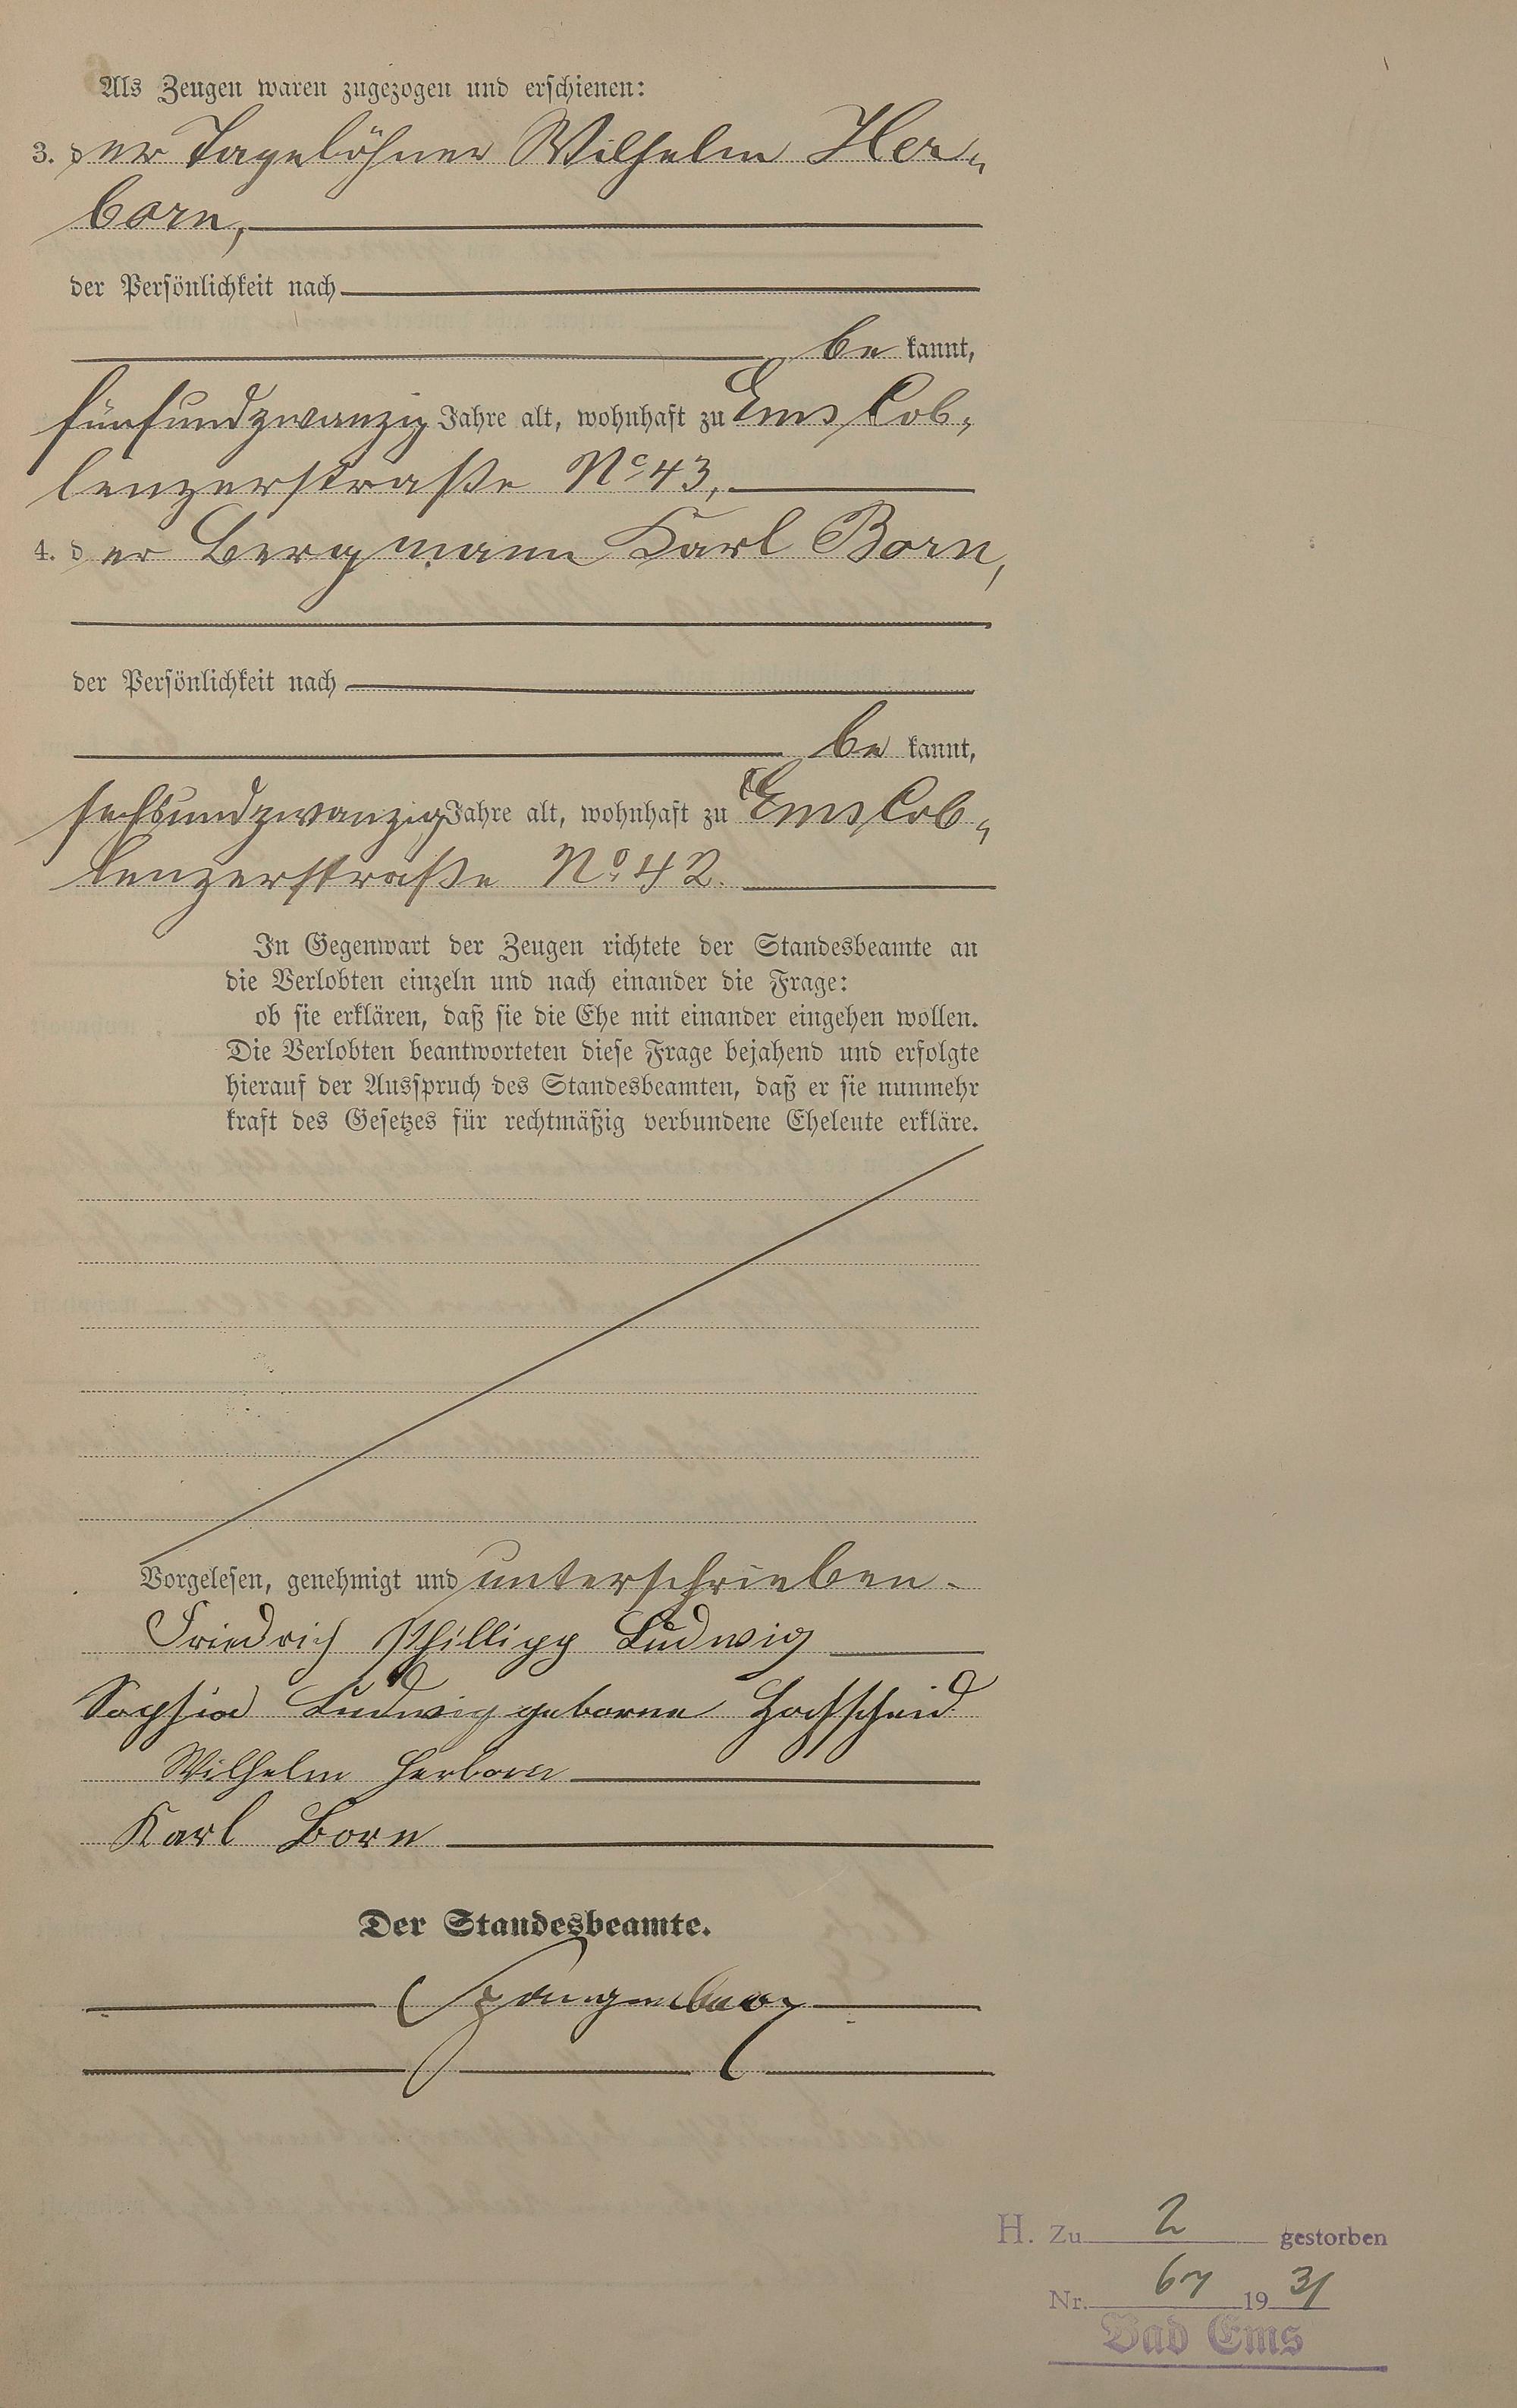 Als Zeugen waren zugezogen und erschienen:
3. der Tagelöhner Wilhelm Her-
born,
der Persönlichkeit nach
be kannt,
fünfundzwanzig Jahre alt, wohnhaft zu Ems Cob-
lenzerstraße No 43,
4. der Bergmann Karl Born,
der Persönlichkeit nach
be kannt,
sechsundzwanzig Jahre alt, wohnhaft zu Ems Cob-
lenzerstraße No 42.
In Gegenwart der Zeugen richtete der Standesbeamte an
die Verlobten einzeln und nach einander die Frage:
ob sie erklären, daß sie die Ehe mit einander eingehen wollen.
Die Verlobten beantworteten diese Frage bejahend und erfolgte
hierauf der Ausspruch des Standesbeamten, daß er sie nunmehr
kraft des Gesetzes für rechtmäßig verbundene Eheleute erkläre.
Vorgelesen, genehmigt und unterschrieben.
Friedrich Phillipp Ludwig
Sophia Ludwig geborne Hofscheid
Wilhelm Herborn
Karl Born
Der Standesbeamte.
Spangenberg
H. Zu 2 gestorben
Nr. 67 1931
Bad Ems